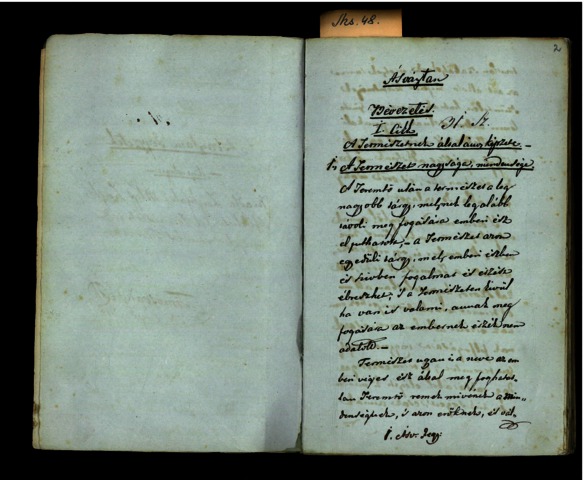 Jks. 48.
2
Ásványtan
Bevezetés.
I. Cikk
A Természetnek általános képzete. –
1, A Természet nagysága, mindensége
A Teremtő után a természet a leg
nagyobb tárgy, melynek legalább
távoli meg fogására emberi ész
el juthatott, – a Természet azon
egyedüli tárgy, mely emberi észben
és szivben fogalmat és érzést
ébreszthet, 's a Természeten kivül
ha van is valami, annak meg
fogására az embernek észék nem
adatott. –
Természet ugyan is a neve az em
beri véges ész által meg foghatat-
lan Teremtő remek mivének a Min-
denségnek, 's azon erőknek, és
1. Ásv. Jegy.